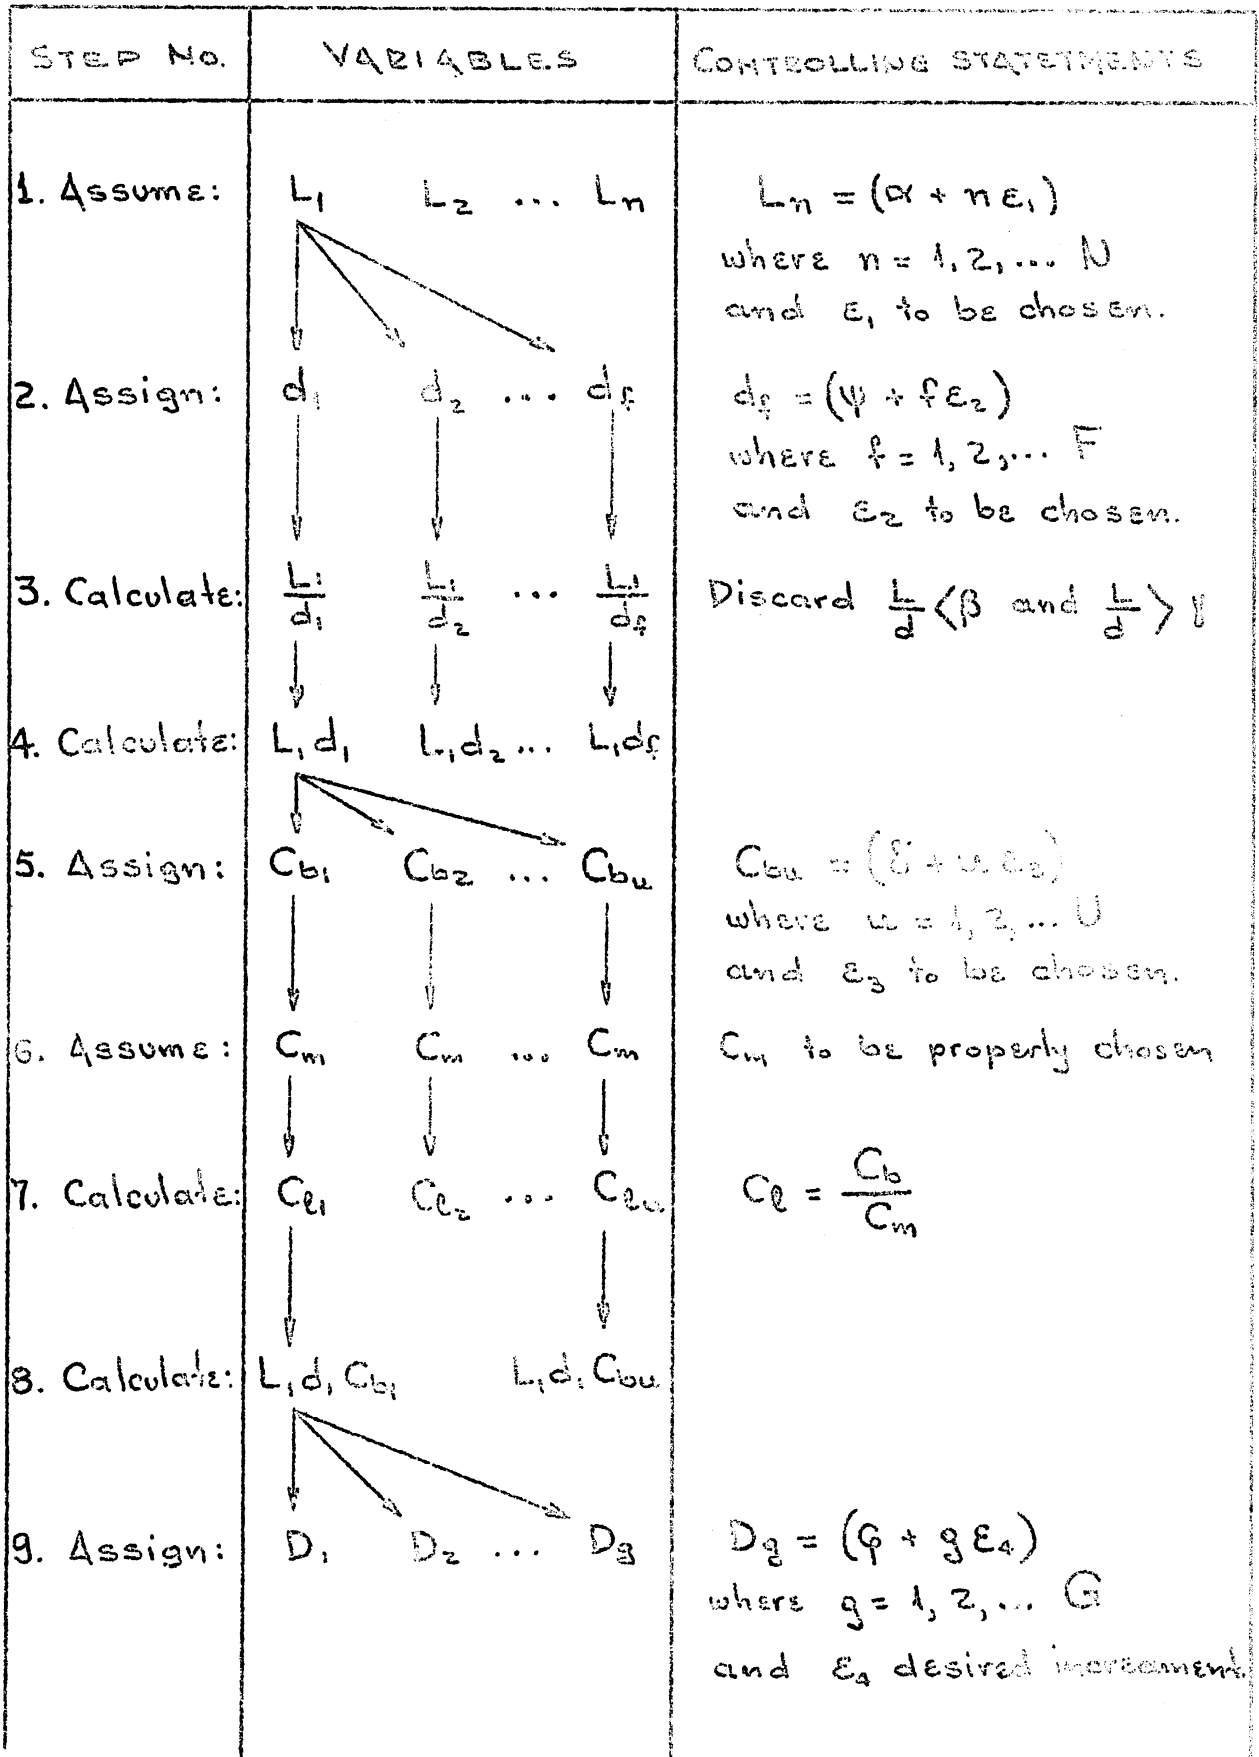 STEP NO. VARIABLES CONTROLLING STATETMENTS
1. Assume: L₁ L₂ ... Lₙ Lₙ = (α + n ε₁)
where n = 1, 2, ... N
and ε₁ to be chosen.
2. Assign: d₁ d₂ ... d_f d_f = (ψ + f ε₂)
where f = 1, 2, ... F
and ε₂ to be chosen.
3. Calculate: L₁/d₁ L₁/d₂ ... L₁/d_f Discard L/d < β and L/d > γ
4. Calculate: L₁d₁ L₁d₂ ... L₁d_f
5. Assign: C_b₁ C_b₂ ... C_bu C_bu = ( + u ε₃)
where u = 1, 2, ... U
and ε₃ to be chosen.
6. Assume: C_m C_m ... C_m C_m to be properly chosen
7. Calculate: C_ℓ₁ C_ℓ₂ ... C_ℓu C_ℓ = C_b/C_m
8. Calculate: L₁d₁C_b₁ L₁d₁C_bu
9. Assign: D₁ D₂ ... D_g D_g = (φ + g ε₄)
where g = 1, 2, ... G
and ε₄ desired increament.